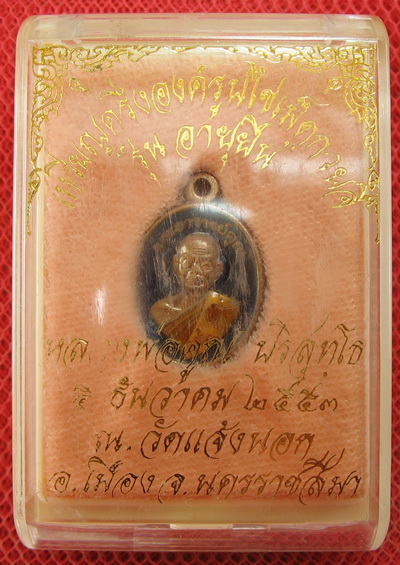 เหรียญครึ่งองค์รูปไข่เม็ดกระดุม
รุ่น อายุยืน
หลวงพ่อคูณ ปริสุทฺโธ
๕ ธันวาคม ๒๕๕๓
ณ. วัดแจ้งนอก
อ.เมือง จ.นครราชสีมา